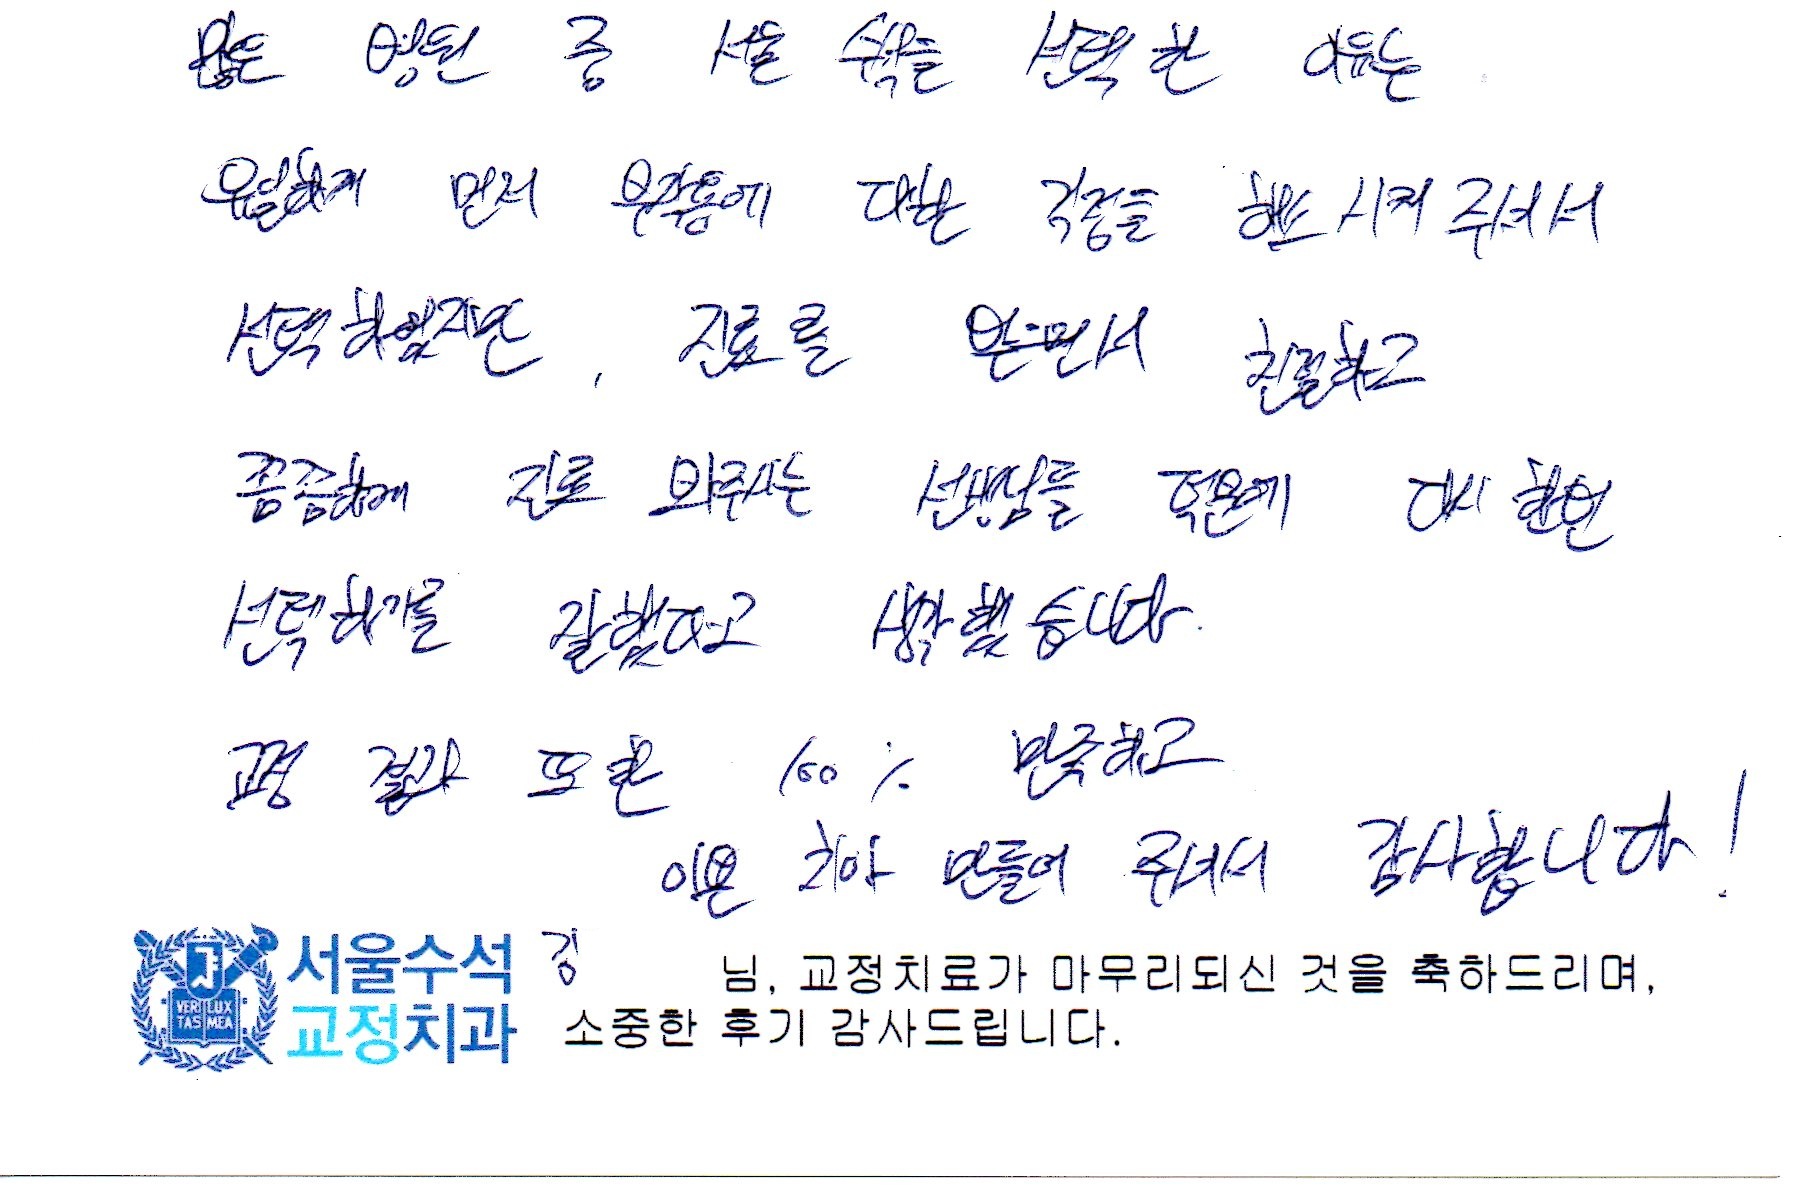 많은 병원 중 서울 수석을 선택한 이유는
유일하게 먼저 부작용에 대한 걱정을 해소시켜 주셔서
선택하였지만, 진료를 받으면서 친절하고
꼼꼼하게 진료 봐주시는 선생님들 덕분에 다시 한번
선택하기를 잘했다고 생각했습니다.
교정 결과 또한 100% 만족하고
이쁜 치아 만들어 주셔서 감사합니다!
서울수석
교정치과
VERI LUX
TAS MEA
김 님, 교정치료가 마무리되신 것을 축하드리며,
소중한 후기 감사드립니다.